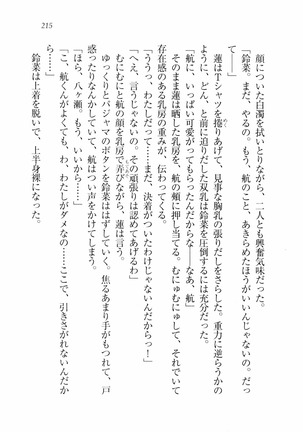 215
顔についた白濁を拭いとりながら、二人とも興奮気味だった。
「鈴菜。まだ、やるの。もう、航のこと、あきらめたほうがいいんじゃないの。だっ
て――」
蓮はTシャツを捲りあげて、見事な胸乳の張りだしをさらした。重力に逆らうかの
ように、どん、と前に迫りだした双乳は鈴菜を圧倒するには充分だった。
「航に、いっぱい可愛がってもらったんだからな――なあ、航」
そのまま蓮は晒した乳房を、航の頬に押し当てる。むにゅむにゅして、それでいて
存在感のある乳房の重みが、伝わってくる。
「ううっ、わたしだって……まだ、決着がついたわけじゃないんだからっ！」
「へえ、言うじゃないの。その頑張りは認めてあげるわ」
むにむにと航の顔を乳房で弄びながら、蓮は言う。
ゆっくりとパジャマのボタンを鈴菜ははずしていく。焦るあまり手がもつれて、戸
惑ったりなんかしていて、航はつい声をかけてしまう。
「ほら、八ヶ瀬。もう、いいから……」
「こ、航くんがよくても、わ、わたしがダメなの……ここで、引きさがれないんだか
ら……」
鈴菜は上着を脱いで、上半身裸になった。